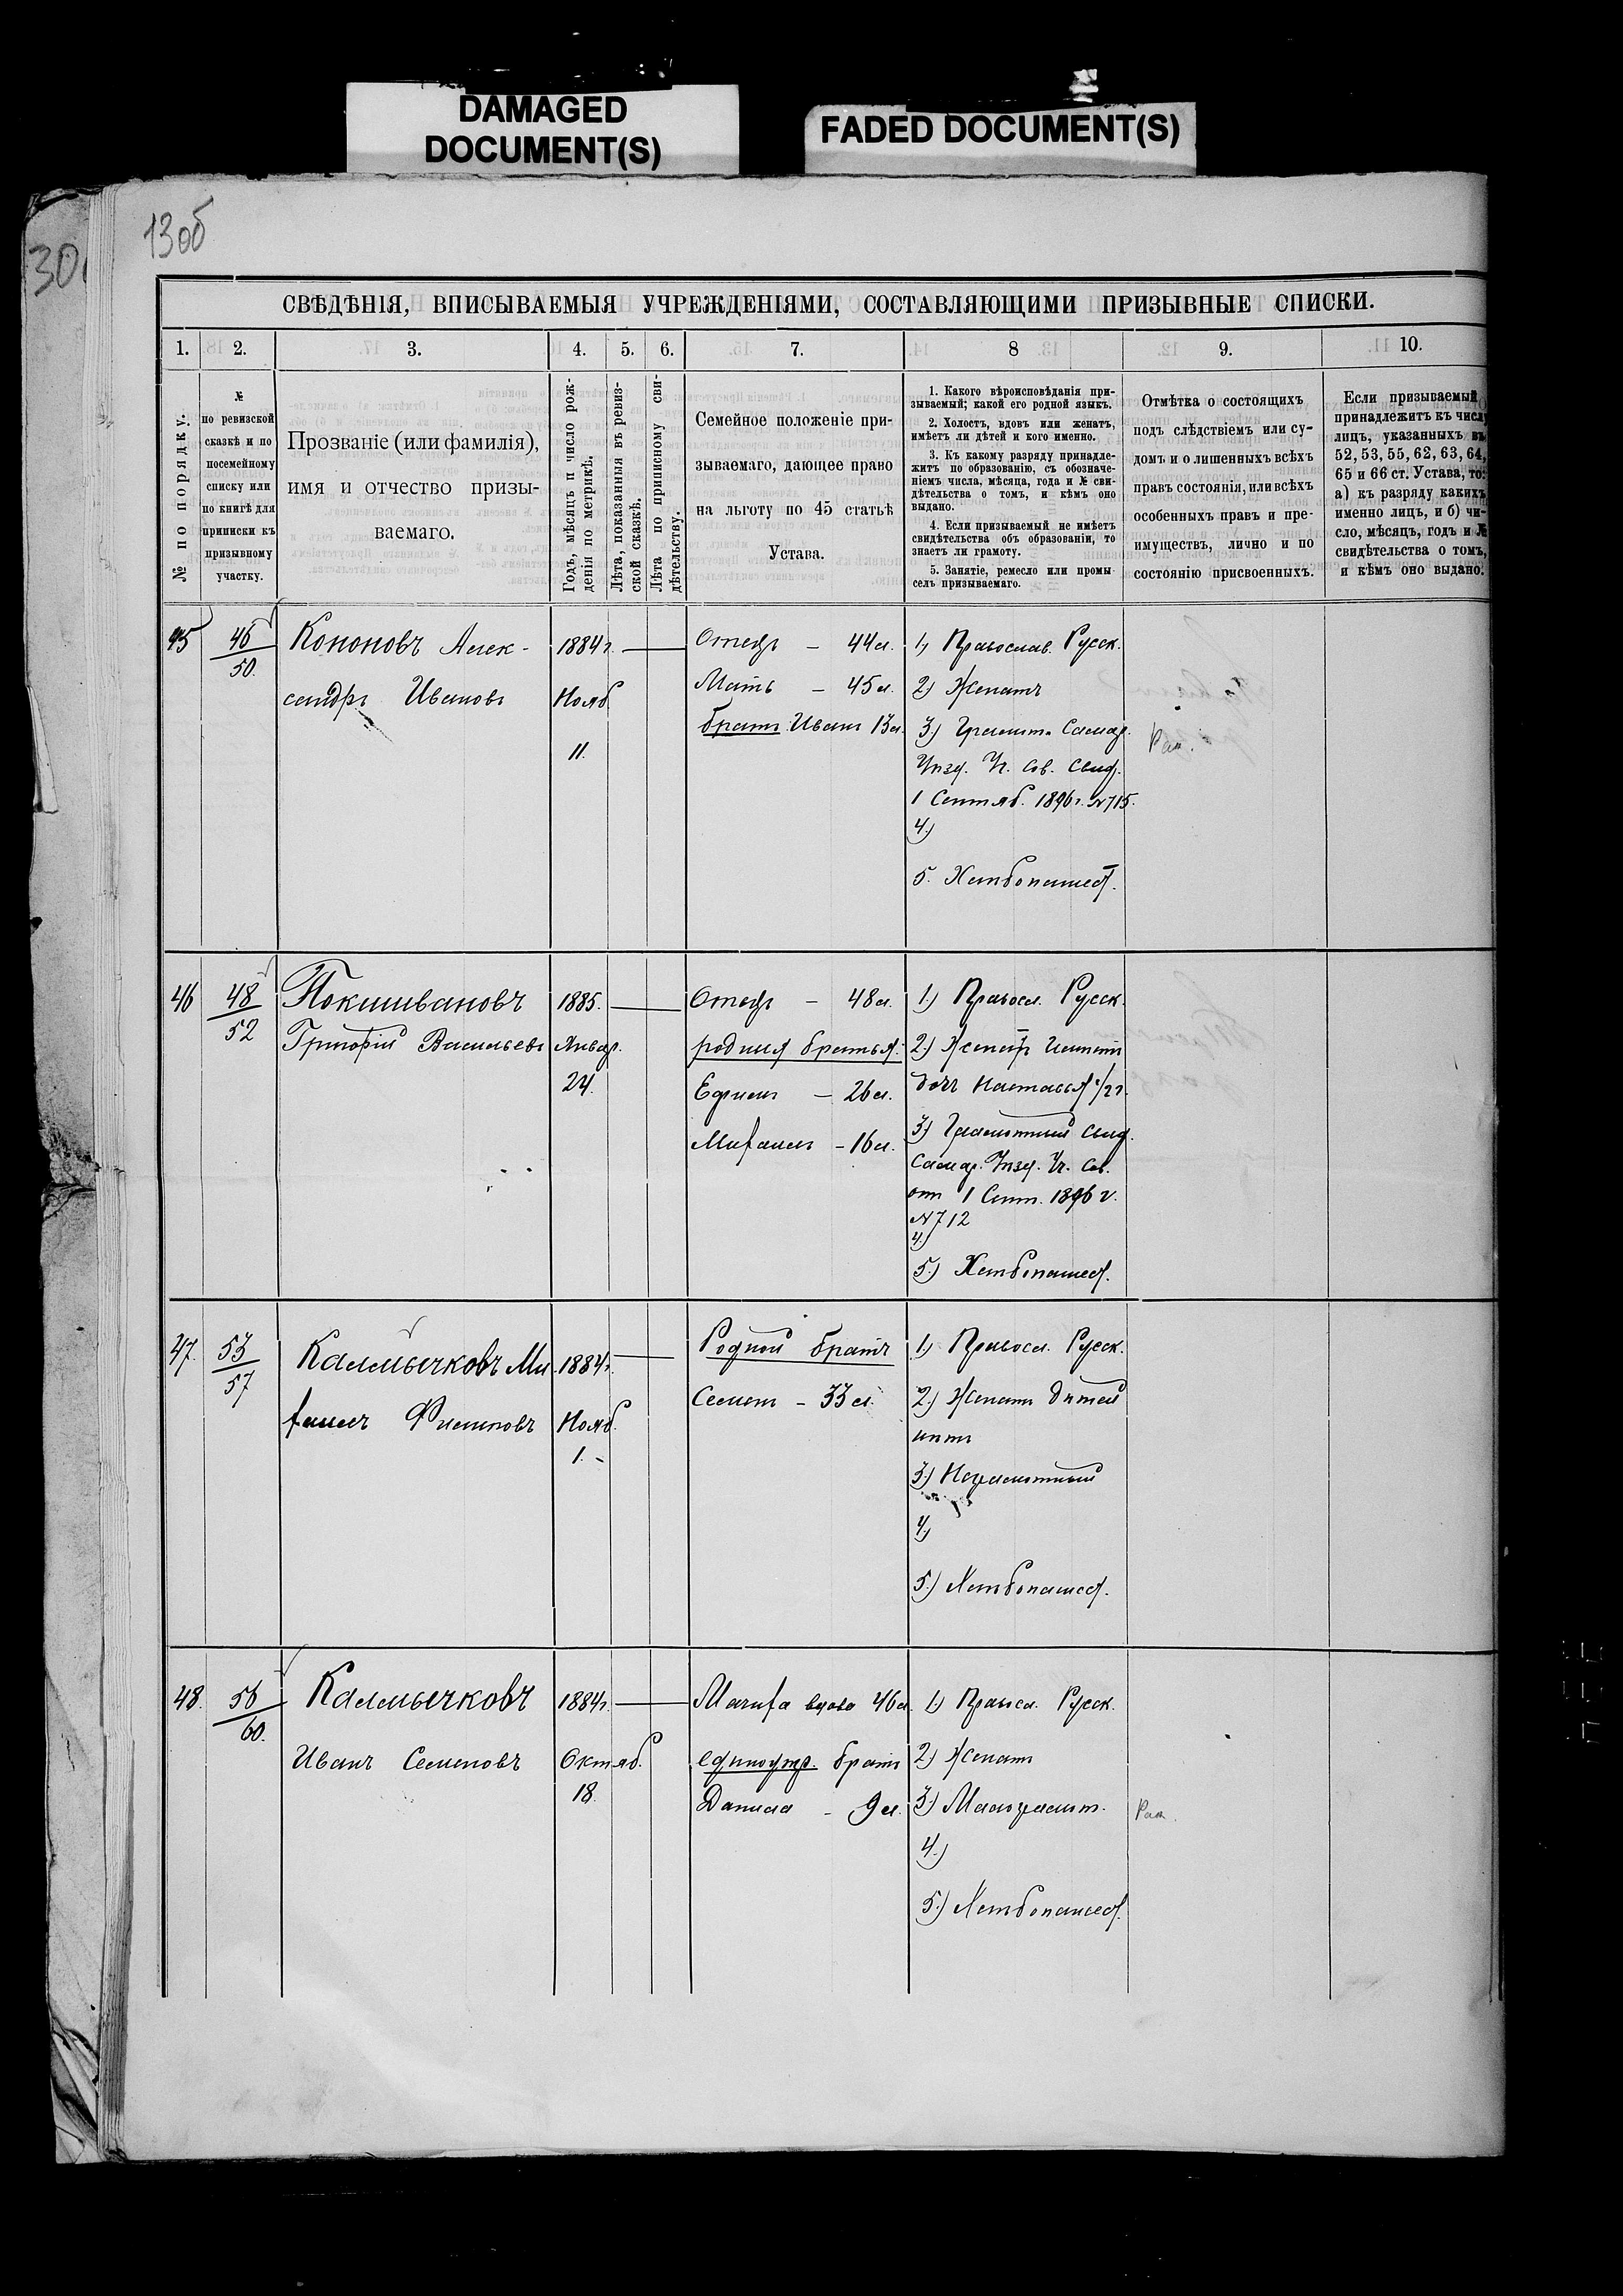 DAMAGED
DOCUMENT(S)
FADED DOCUMENT(S)
13об
30
СВѢДѢНІЯ, ВПИСЫВАЕМЫЯ УЧРЕЖДЕНІЯМИ, СОСТАВЛЯЮЩИМИ ПРИЗЫВНЫЕ СПИСКИ.
1. 2. 3. 4. 5. 6. 7. 8 9. 10.
№ по порядку.
№
по ревизской
сказкѣ и по
посемейному
списку или
по книгѣ для
приписки къ
призывному
участку.
Прозваніе (или фамилія),
имя и отчество призы-
ваемаго.
Годъ, мѣсяцъ и число рож-
денія по метрикѣ.
Лѣта, показанныя въ ревиз-
ской сказкѣ.
Лѣта по приписному сви-
дѣтельству.
Семейное положеніе при-
зываемаго, дающее право
на льготу по 45 статьѣ
Устава.
1. Какого вѣроисповѣданія при-
зываемый; какой его родной языкъ.
2. Холостъ, вдовъ или женатъ,
имѣетъ ли дѣтей и кого именно.
3. Къ какому разряду принадле-
житъ по образованію, съ обозначе-
ніемъ числа, мѣсяца, года и № сви-
дѣтельства о томъ, и кѣмъ оно
выдано.
4. Если призываемый не имѣетъ
свидѣтельства объ образованіи, то
знаетъ ли грамоту.
5. Занятіе, ремесло или промы-
селъ призываемаго.
Отмѣтка о состоящихъ
подъ слѣдствіемъ или су-
домъ и о лишенныхъ всѣхъ
правъ состоянія, или всѣхъ
особенныхъ правъ и пре-
имуществъ, лично и по
состоянію присвоенныхъ.
Если призываемый
принадлежитъ къ числу
лицъ, указанныхъ въ
52, 53, 55, 62, 63, 64,
65 и 66 ст. Устава, то:
а) къ разряду какихъ
именно лицъ, и б) чи-
сло, мѣсяцъ, годъ и №
свидѣтельства о томъ,
и кѣмъ оно выдано.
45
46
50.
Кононовъ Алек-
сандръ Ивановъ
1884 г.
Нояб.
11.
Отецъ – 44 л.
Мать – 45 л.
братъ Иванъ 13 л.
1) Православ. Русск.
2) Женатъ
3) Грамотн. Самар.
Уѣзд. Уч. Сов. Свид.
1 Сентяб. 1896 г. №715.
4)
5. Хлѣбопашест.
46
48
52
Покшивановъ
Григорій Васильевъ
1885.
Январ.
24.
Отецъ – 48 л.
родныя братья:
Ефимъ – 26 л.
Михаилъ – 16 л.
1.) Правосл. Русск.
2.) Женатъ имѣетъ
дочь Настасья
3.) Грамотный Свид.
Самар. Уѣзд. Уч. Сов.
отъ 1 Сент. 1896 г.
№712
4.)
5.) Хлѣбопашест.
47.
53
57
Калмычковъ Ми
хаилъ Филиповъ
1884 г.
Нояб.
1.
Родной братъ
Семенъ – 33 л.
1.) Правосл. Русск.
2.) Женатъ дѣтей
нѣтъ
3.) Неграмотный
4.)
5.) Хлѣбопашест.
48.
56
60.
Калмычковъ
Иванъ Семеновъ
1884 г.
Октяб.
18.
Мачиха вдова 46 л.
единоутр. братъ
Данила – 9 л.
1.) Правосл. Русск.
2.) Женатъ
3.) Малограмот.
4.)
5.) Хлѣбопашест.